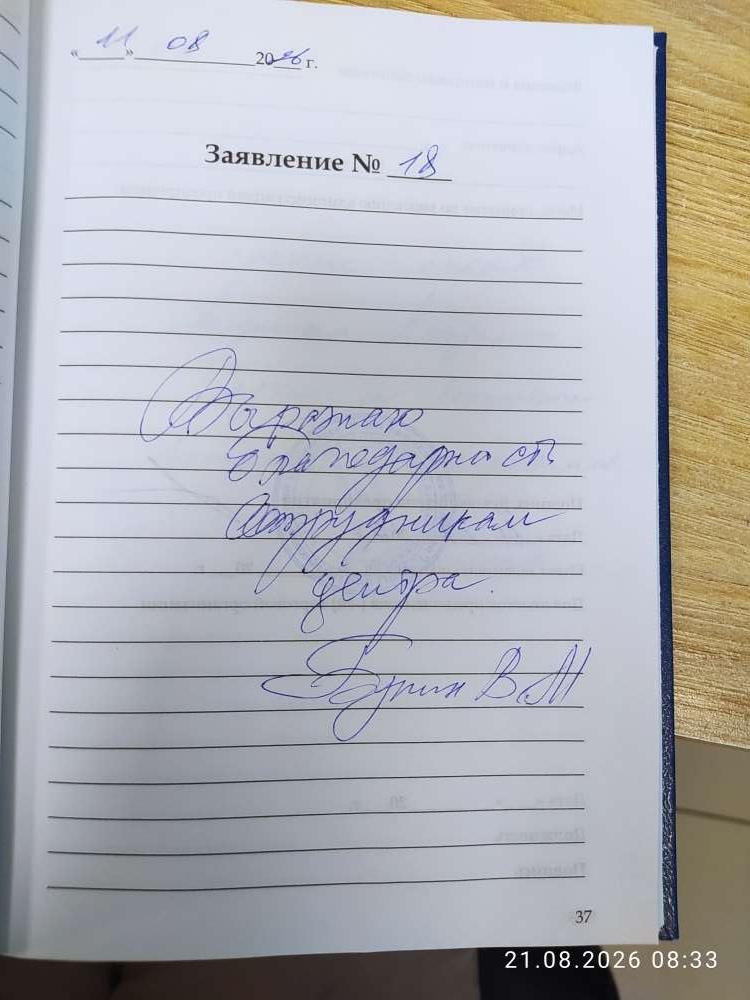 «11» 08 2026 г.
Заявление № 18
Выражаю
благодарность
сотрудникам
центра.
Бунин В М
37
21.08.2026 08:33